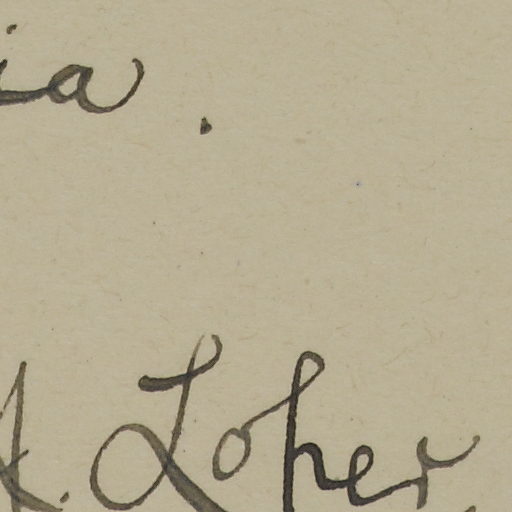 ia.
A. Loher